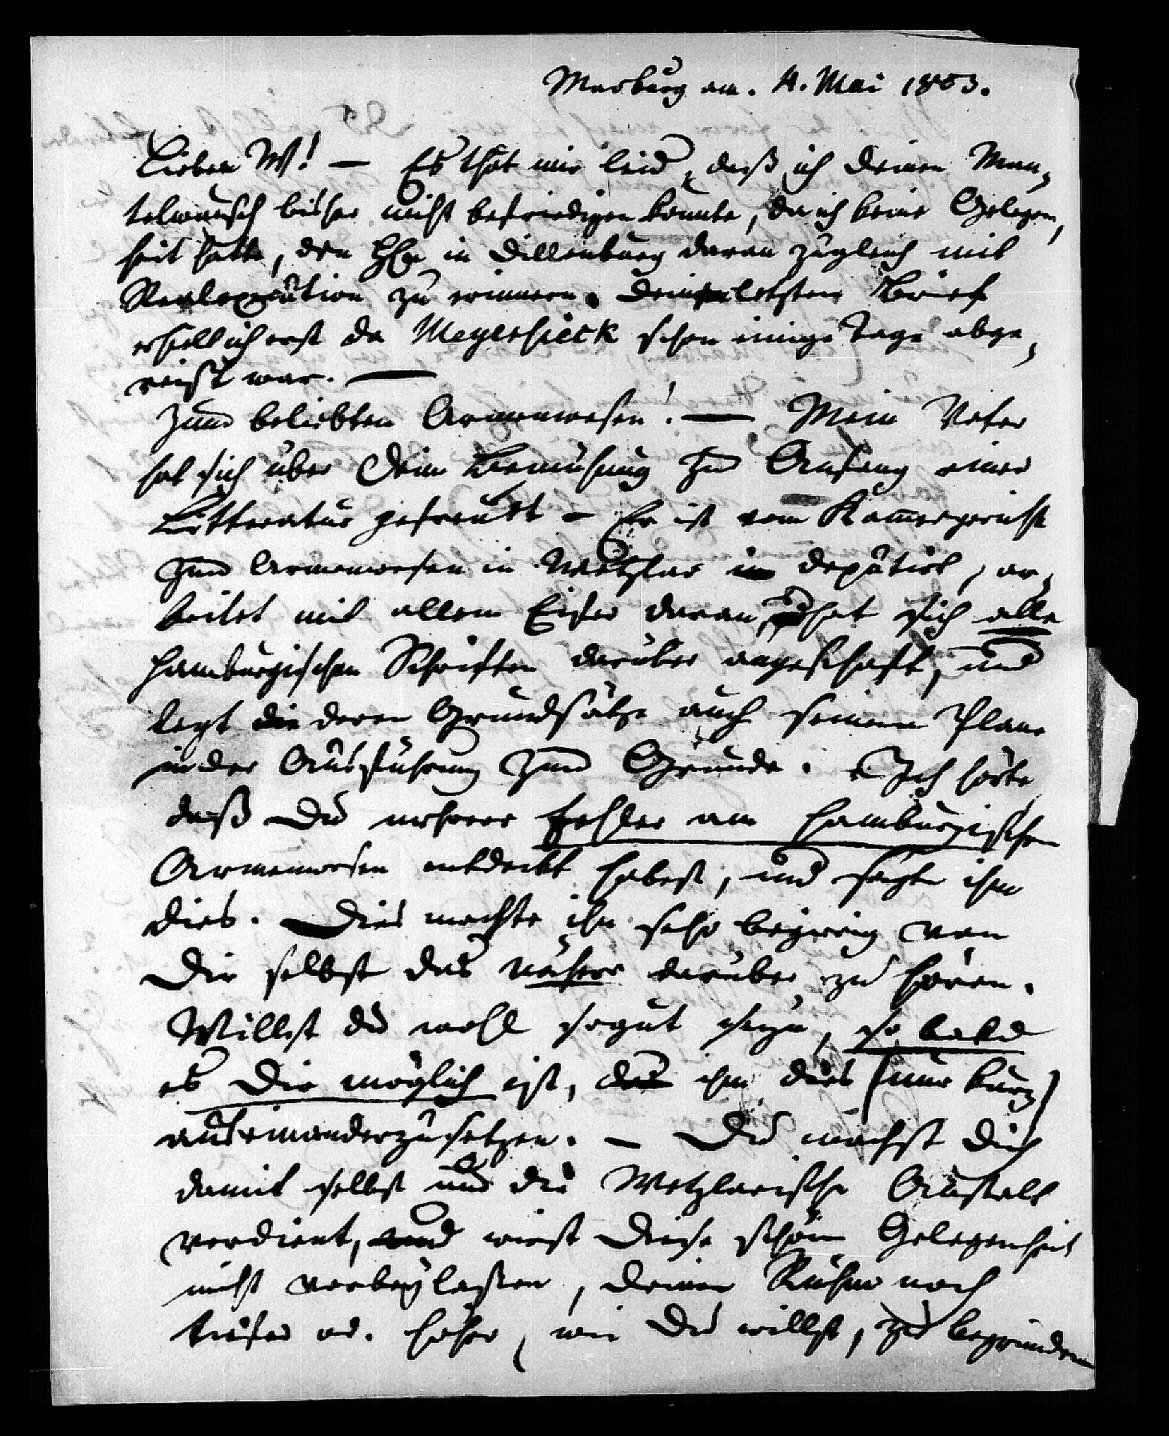 Marburg am. 4. Mai 1803.
Lieber W! — Es that mir leid, daß ich deinen Man-
telwunsch bisher nicht befriedigen konnte, da ich keine Gelegen,
heit hatte, den in Dillenburg daran zugleich mit
zu erinnern. Deinen letzten Brief
erhielt ich erst da Meyersieck schon einige Tage abge,
reist war. —
Zum beliebten Armenwesen! — Mein Vater
hat sich über Deine Bemühung zu Anfang einer
Litteratur gefreut — Er ist vom Kammergericht
zum Armenwesen in Wetzlar deputirt, ar,
beitet mit allem Eifer daran, hat sich alle
hamburgischen Schriften darüber angeschaft, und
legt deren Grundsätze auch seinem Plane
in der Ausführung zum Grunde. Ich hörte,
daß Du mehrere Fehler am hamburgischen
Armenwesen entdeckt habest, und sagte ihm
dies. Dies machte ihn sehr begierig von
Dir selbst das nähere darüber zu hören.
Willst du wohl so gut seyn, so bald
es Dir möglich ist, ihm dies (nur kurz)
auseinanderzusetzen. — Du machst Dich
damit selbst um die Wetzlarische Anstalt
verdient, und wirst diese schöne Gelegenheit
nicht vorbeylassen, deinen Ruhm noch
tiefer od. höher, wie Du willst, zu begründen